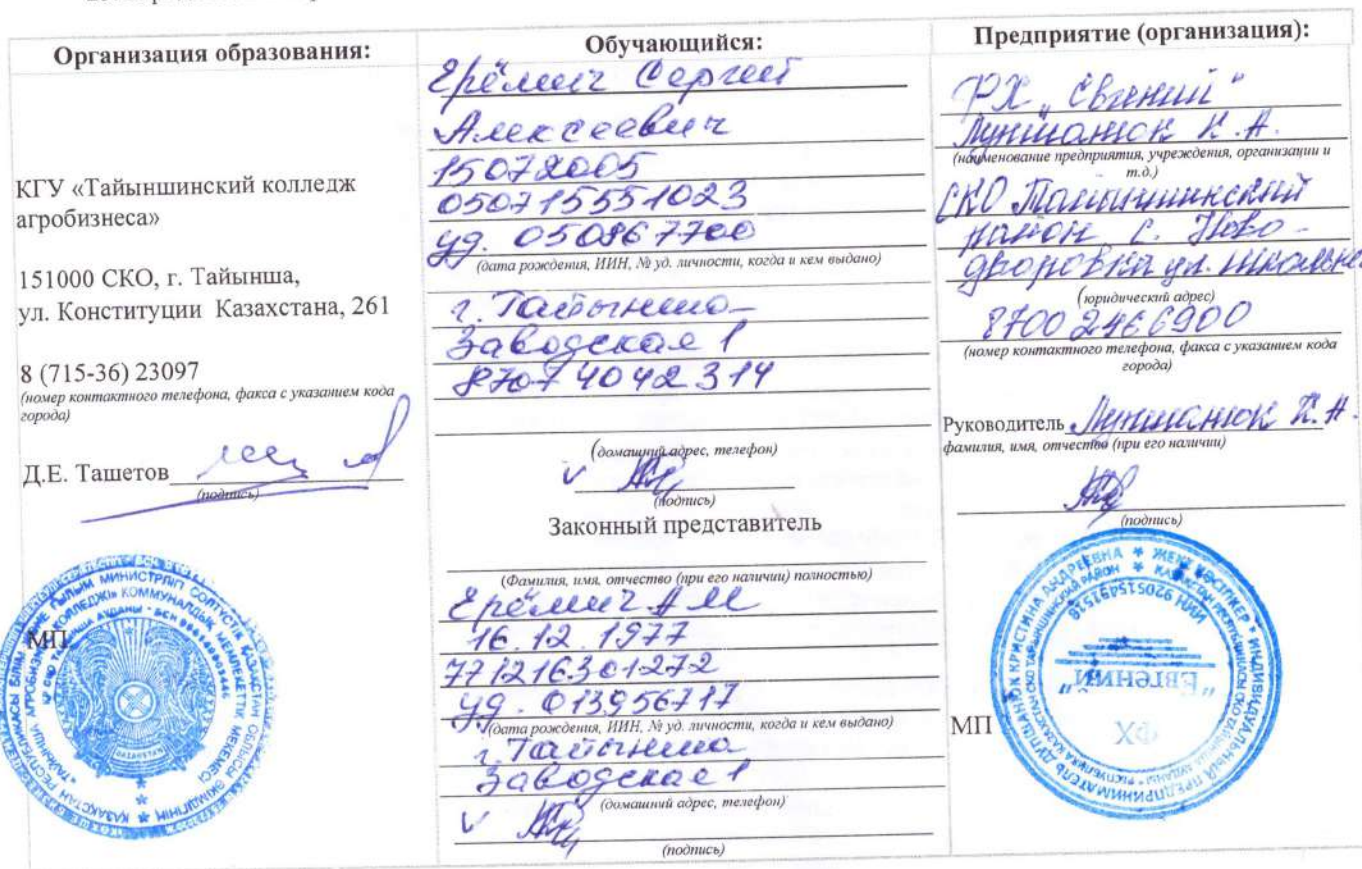 Организация образования:
КГУ «Тайыншинский колледж
агробизнеса»
151000 СКО, г. Тайынша,
ул. Конституции Казахстана, 261
8 (715-36) 23097
(номер контактного телефона, факса с указанием кода
города)
Д.Е. Ташетов
(подпись)
МП
Обучающийся:
Ерёмич Сергей
Алексеевич
15072005
050715551023
уд. 050867700
(дата рождения, ИИН, № уд. личности, когда и кем выдано)
г. Тайынша
Заводская 1
87074042314
(домашний адрес, телефон)
(подпись)
Законный представитель
(Фамилия, имя, отчество (при его наличии) полностью)
Ерёмич А
16.12.1977
771216301272
уд. 013956717
(дата рождения, ИИН, № уд. личности, когда и кем выдано)
г. Тайынша
Заводская 1
(домашний адрес, телефон)
(подпись)
Предприятие (организация):
ФХ "Евгений"
К.А.
(наименование предприятия, учреждения, организации и
т.д.)
СКО Тайыншинский
район с. Ново-
дворовка ул.
(юридический адрес)
87002466900
(номер контактного телефона, факса с указанием кода
города)
Руководитель
фамилия, имя, отчество (при его наличии)
(подпись)
МП
ИНДИВИДУАЛЬНЫЙ ПРЕДПРИНИМАТЕЛЬ ДУПШАНЮК КРИСТИНА АНДРЕЕВНА * ЖЕКЕ КӘСІПКЕР *
ФХ
"Евгений"